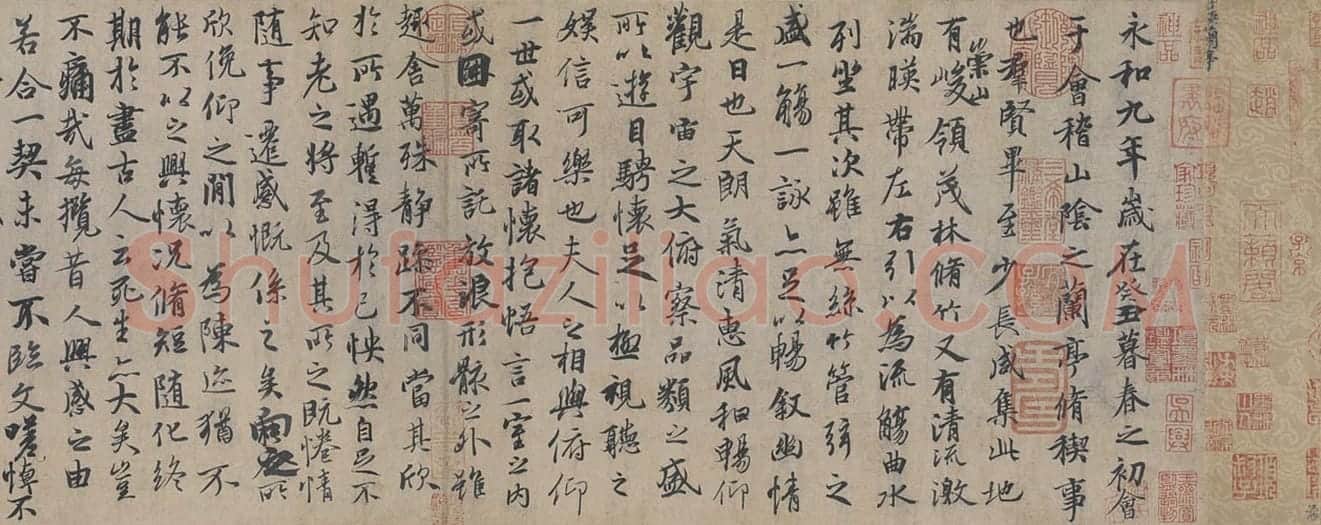 永和九年歲在癸丑暮春之初會
于會稽山陰之蘭亭脩稧事
也羣賢畢至少長咸集此地
有崇山峻領茂林脩竹又有清流激
湍暎帶左右引以為流觴曲水
列坐其次雖無絲竹管弦之
盛一觴一詠亦足以暢敘幽情
是日也天朗氣清惠風和暢仰
觀宇宙之大俯察品類之盛
所以遊目騁懷足以極視聽之
娛信可樂也夫人之相與俯仰
一世或取諸懷抱悟言一室之內
或因寄所託放浪形骸之外雖
趣舍萬殊靜躁不同當其欣
於所遇暫得於己怏然自足不
知老之將至及其所之既惓情
隨事遷感慨係之矣向之所
欣俛仰之閒以為陳迹猶不
能不以之興懷況脩短隨化終
期於盡古人云死生亦大矣豈
不痛哉每攬昔人興感之由
若合一契未嘗不臨文嗟悼不
神品
天籟閣
Shufaziliao.COM